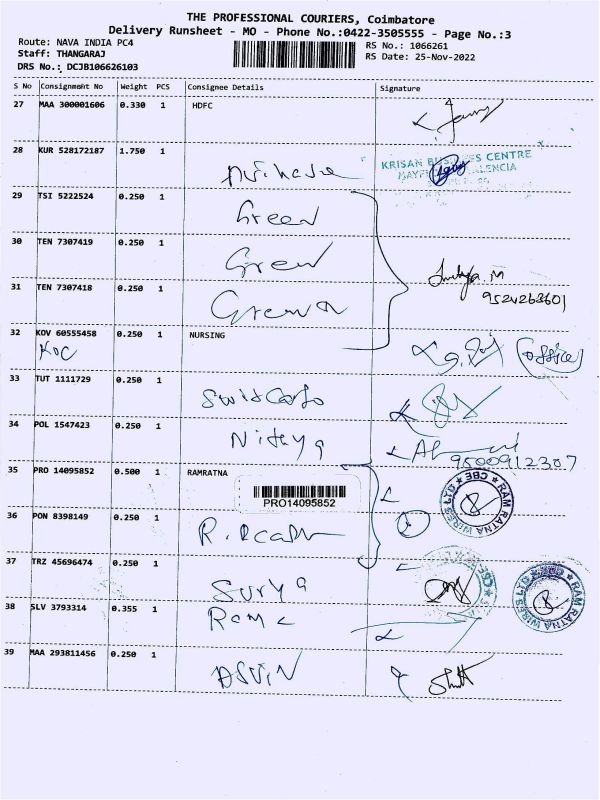 THE PROFESSIONAL COURIERS, Coimbatore
Delivery Runsheet - MO - Phone No.:0422-3505555 - Page No.:3
Route: NAVA INDIA PC4
Staff: THANGARAJ
DRS No.: DCJB106626103
RS No.: 1066261
RS Date: 25-Nov-2022
S No Consignment No Weight PCS Consignee Details Signature
27 MAA 300001606 0.330 1 HDFC
28 KUR 528172187 1.750 1
KRISAN BUSINESS CENTRE
VALENCIA
29 TSI 5222524 0.250 1 Green
30 TEN 7307419 0.250 1 Green
31 TEN 7307418 0.250 1
9524263601
32 KOV 60555458 0.250 1 NURSING
KOC (office)
33 TUT 1111729 0.250 1
34 POL 1547423 0.250 1 Nitaya
9500912307
35 PRO 14095852 0.500 1 RAMRATNA
PRO14095852
RAM RATNA WIRES LTD ★ CBE ★
36 PON 8398149 0.250 1
37 TRZ 45696474 0.250 1 Surya
RAM RATNA WIRES LTD ★ CBE ★
38 SLV 3793314 0.355 1 Rama
39 MAA 293811456 0.250 1 ASVIN